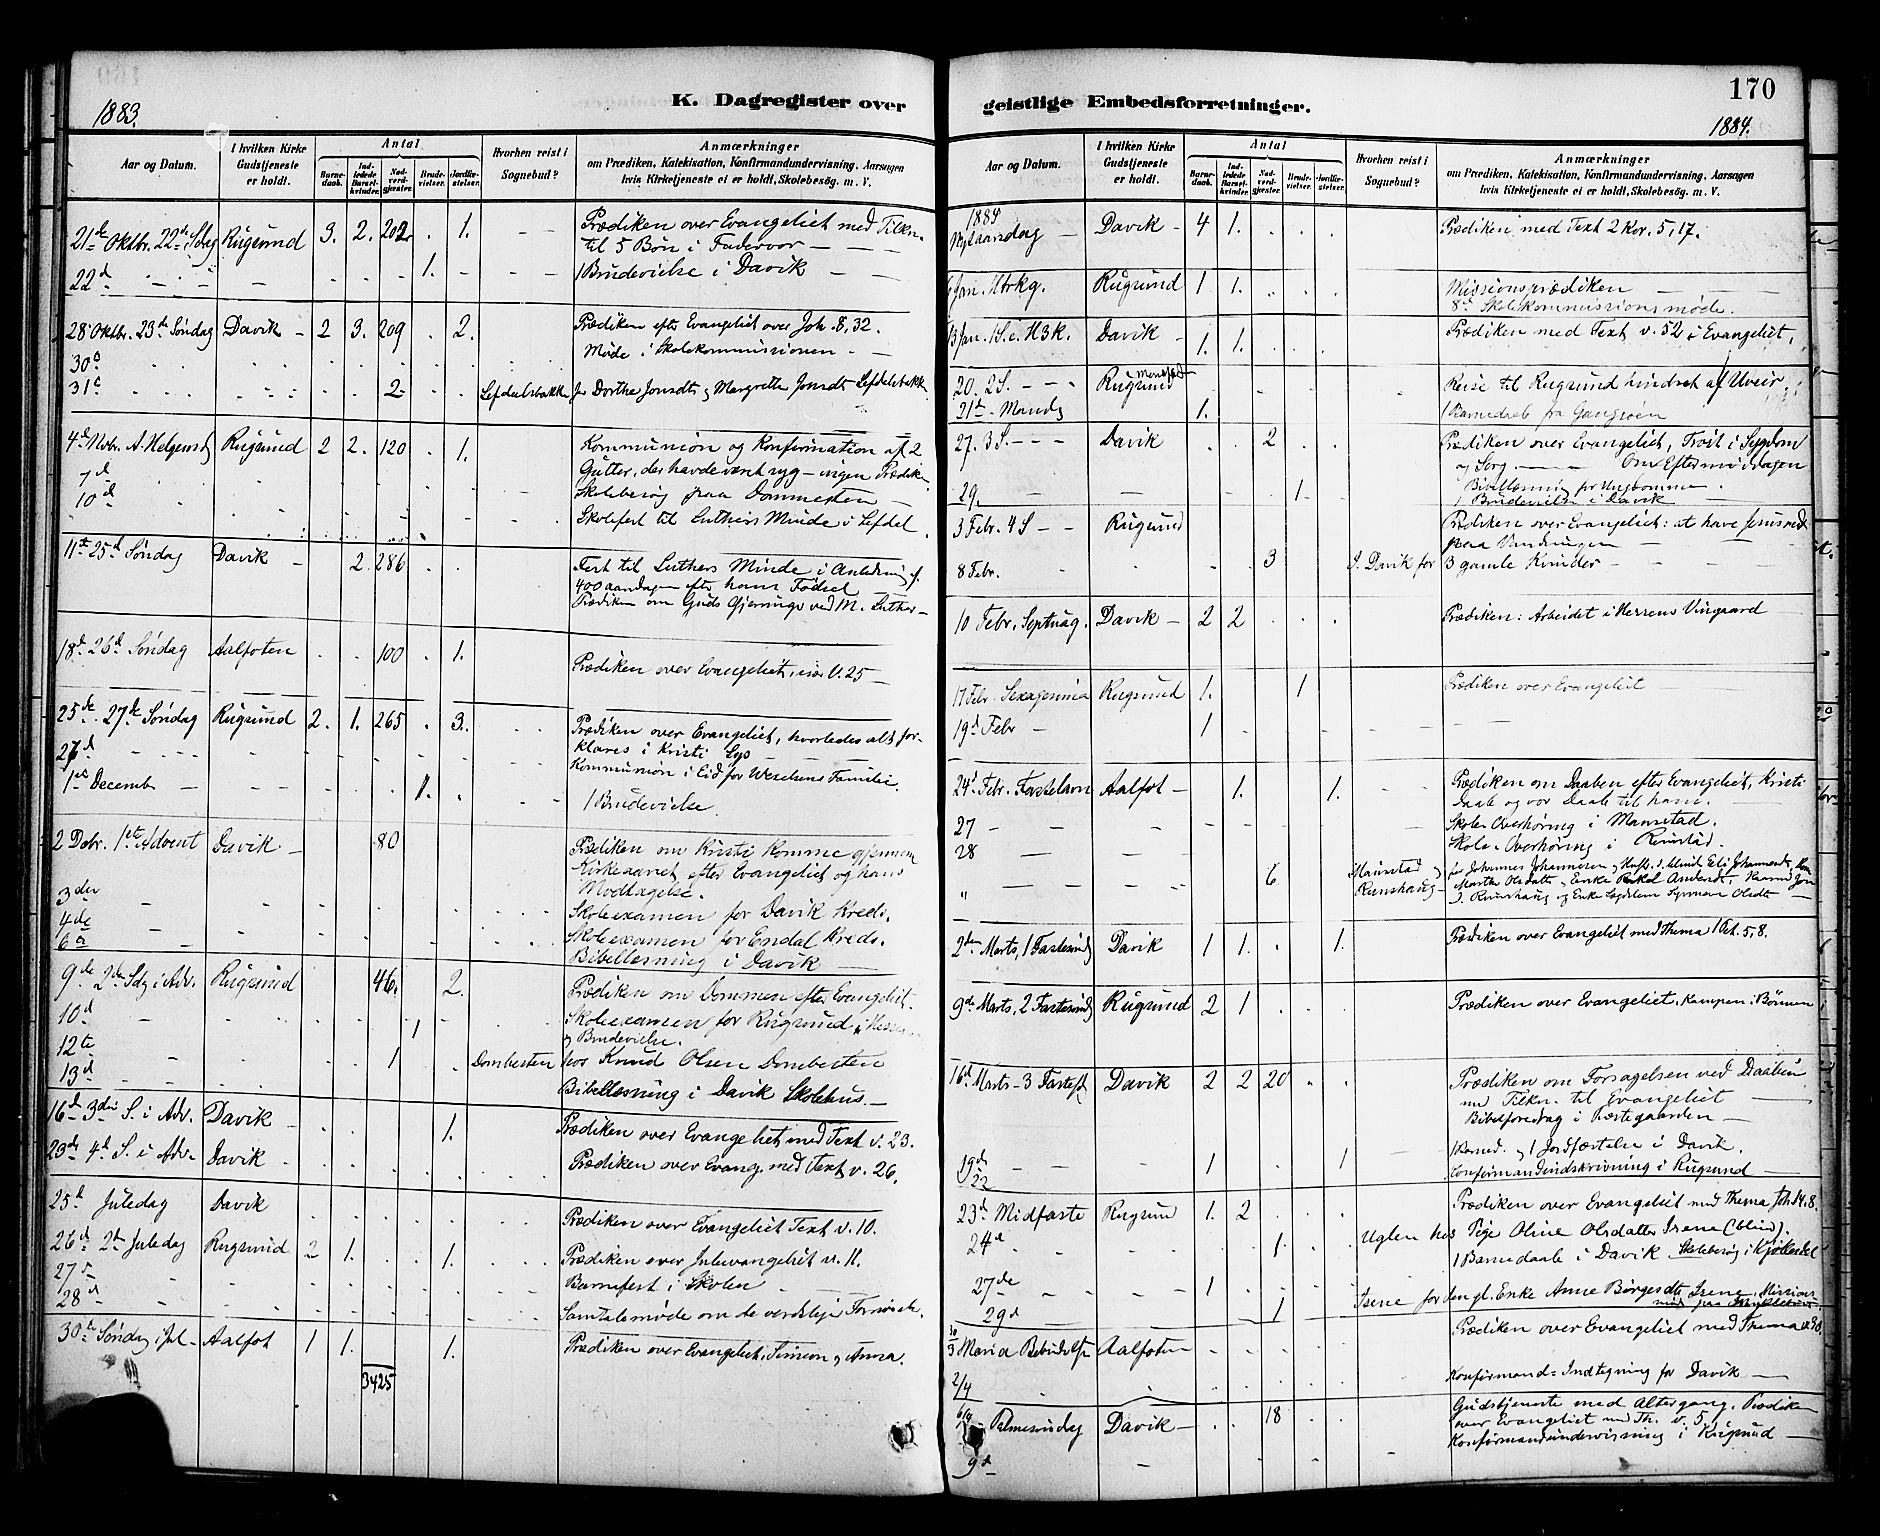 170
K. Dagregister over geistlige Embedsforretninger.
1883.
Aar og Datum. I hvilken Kirke Gudstjeneste er holdt. Antal Barnedaab. Indledede Barselkvinder. Nadverdgjester. Brudevielser. Jordfæstelser. Hvorhen reist i Sognebud? Anmærkninger om Prædiken, Katekisation, Konfirmandundervisning. Aarsagen hvis Kirketjeneste ei er holdt, Skolebesøg. m. V.
21de Oktbr. 22de Sdg Rugsund 3. 2. 202 . 1. Prædiken over Evangeliet med Tilkn.
til 5 Bøn i Fadervor
22d 1. 1 Brudevielse i Davik
28 Oktbr. 23de Søndag Davik 2 3. 209 . 2. Prædiken efter Evangeliet over Joh. 8, 32.
30. Møde i Skolekommissionen
31. 2 Lefdalsbakke for Dorthe Jonsdt. og Margrethe Jonsdt. Lefdalsbakke
4de Nvbr. A. Helgensf Rugsund 2 2. 120 . 1. Kommunion og Konfirmation af 2
Gutter, der havde været syg – ingen Prædiken
7d Skolebesøg paa Dommesten
10d Skolefest til Luthers Minde i Lefdal
11te 25d Søndag Davik 2. 286 Fest til Luthers Minde i Anledning af
400 aarsdagen efter hans Fødsel
Prædiken om Guds Gjerninger ved M. Luther
18de 26d Søndag Aalfoten . . 100 . 1.
Prædiken over Evangeliet, især V. 25
25de 27de Søndag Rugsund 2. 1. 265 . 3. Prædiken over Evangeliet, hvorledes alt for-
klares i Kristi Lys
27d Kommunion i Eid for Familie.
1ste December 1. 1 Brudevielse
2 Dcbr. 1ste Advent Davik 80 Prædiken om Kristi Komme gjennem
Kirkeaaret efter Evangeliet og hans
Modtagelse.
3die Skoleexamen for Davik Kreds.
4de Skoleexamen for Endal Kreds.
6te Bibellæsning i Davik
9de 2den Sdg i Adv. Rugsund 46. 2. Prædiken om Dommen efter Evangeliet.
10d 1 Skoleexamen for Rugsund
og Brudevielse.
12te 1 Dombesten hos Knud Olsen Dombesten
13d Bibellæsning i Davik Skolehus.
16de 3die S. i Adv. Davik 1. Prædiken over Evangeliet med Text v. 23.
23de 4d S. i Adv. Davik Prædiken over Evang. med Text v. 26.
25d Juledag Davik Prædiken over Evangeliet Text v. 10.
26d 2d Juledag Rugsund 2 1. 1. Prædiken over Juleevangeliet v. 11.
27d Barnefest i Skolen
28d Samtalemøde om de verdslige Fornøiels.
30te Søndag i Jul Aalfot 1 1. 1. Prædiken over Evangeliet, Simeon og Anna.
3425
1884.
Aar og Datum. I hvilken Kirke Gudstjeneste er holdt. Antal Barnedaab. Indledede Barselkvinder. Nadverdgjester. Brudevielser. Jordfæstelser. Hvorhen reist i Sognebud? Anmærkninger om Prædiken, Katekisation, Konfirmandundervisning. Aarsagen hvis Kirketjeneste ei er holdt, Skolebesøg. m. V.
1884
Nytaarsdag Davik 4 1. Prædiken med Text 2 Kor. 5, 17.
6 Jan. Rugsund 1 1. Missionsprædiken
8d Skolekommissionsmøde.
13 Jan. 1 S. e. H3k. Davik 1. 1. Prædiken med Text v. 52 i Evangeliet.
20. 2 S. Rugsund Reise til Rugsund hindret af Uveir.
21d Mandg 1. 1 Barnedaab fra Gangsøen
27. 3 S. Davik 2 Prædiken over Evangeliet, Trøst i Sygdom
og Sorg. Om Eftermiddagen
Bibellæsning for Ungdommen
29. 1 1 Brudevielse i Davik
3 Febr. 4 S Rugsund Prædiken over Evangeliet: at have Jesus med
paa Vandringen
8 Febr. 3 I Davik for 3 gamle Kvinder
10 Febr. Septuag. Davik 2 2 Prædiken: Arbeidet i Herrens Vingaard
17 Febr. Sexagesima Rugsund 1. 1 Prædiken over Evangeliet
19d Febr 1
24d Febr. Fastelavn Aalfot 1. 1. Prædiken om Daaben efter Evangeliet, Kristi
Daab og vor Daab til ham.
27 Skole-Overhøring i Maurstad.
28 Skole-Overhøring i Rimstad.
" 6 Maurstad og Rimshaug for Johannes Johannesen
Marthe Olsdatter
2den Marts, 1 Fastesøndg Davik 1 1. 1. Prædiken over Evangeliet med Thema 1 Pet. 5, 8.
9de Marts, 2 Fastesøndg Rugsund 2 1 Prædiken over Evangeliet, Kampen i Bønnen
16d Marts 3 Fastesd Davik 2 2 20 Prædiken om Forsagelsen ved Daaben
med Tilkn. til Evangeliet
Bibelforedrag i Præstegaarden
19de 1 1 1 Barned. og 1 Jordfæstelse i Davik.
22 Konfirmandindskrivning i Rugsund
23d Midfaste Rugsund 1. 2 Prædiken over Evangeliet med Thema Joh 14. 8.
24d 1. Uglen hos Pige Oline Olsdatter Isene (blind).
27de 1 1 Barnedaab i Davik Skolebesøg i
29d 1 Isene for den gl. Enke Anne Børgesdtr Isene,
30/3 Maria Bebudelse Aalfoten Prædiken over Evangeliet med Thema v. 30.
2/4 Konfirmand-Indtegning for Davik
6/4 Palmesøndag Davik 18 Gudstjeneste med Altergang. Prædiken
over Evangeliet med Th. v. 5
9d Konfirmandundervisning i Rugsund